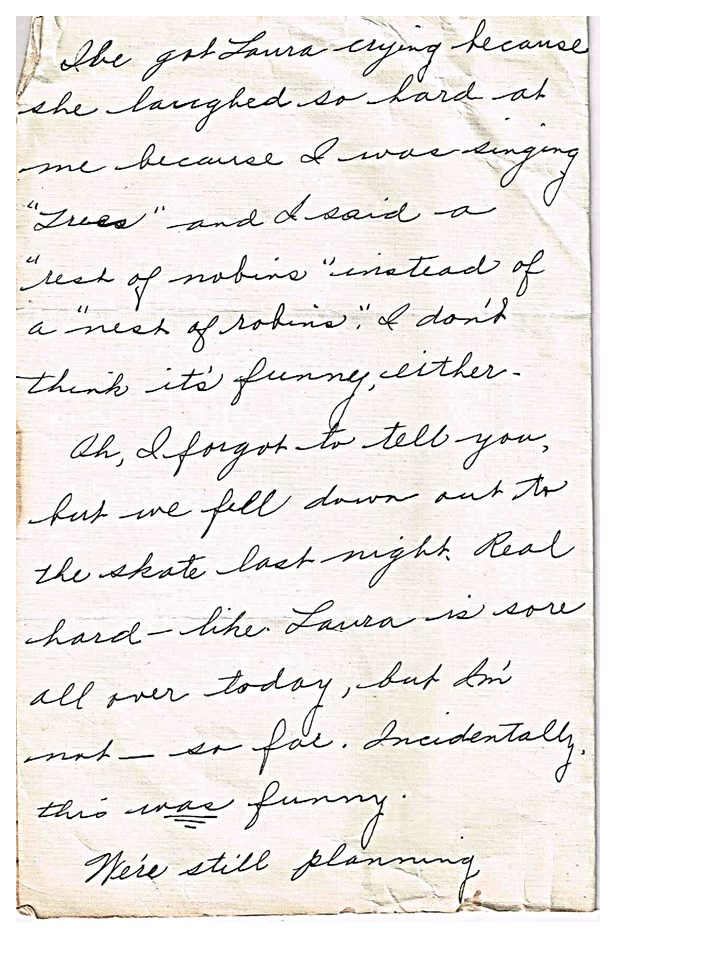 I've got Laura crying because
she laughed so hard at
me because I was singing
"Trees" and I said a
"rest of nobins" instead of
a "nest of robins". I don't
think it's funny, either.
Oh, I forgot to tell you,
but we fell down out to
the skate last night. Real
hard – like. Laura is sore
all over today, but I'm
not — so far. Incidentally,
this was funny.
We're still planning